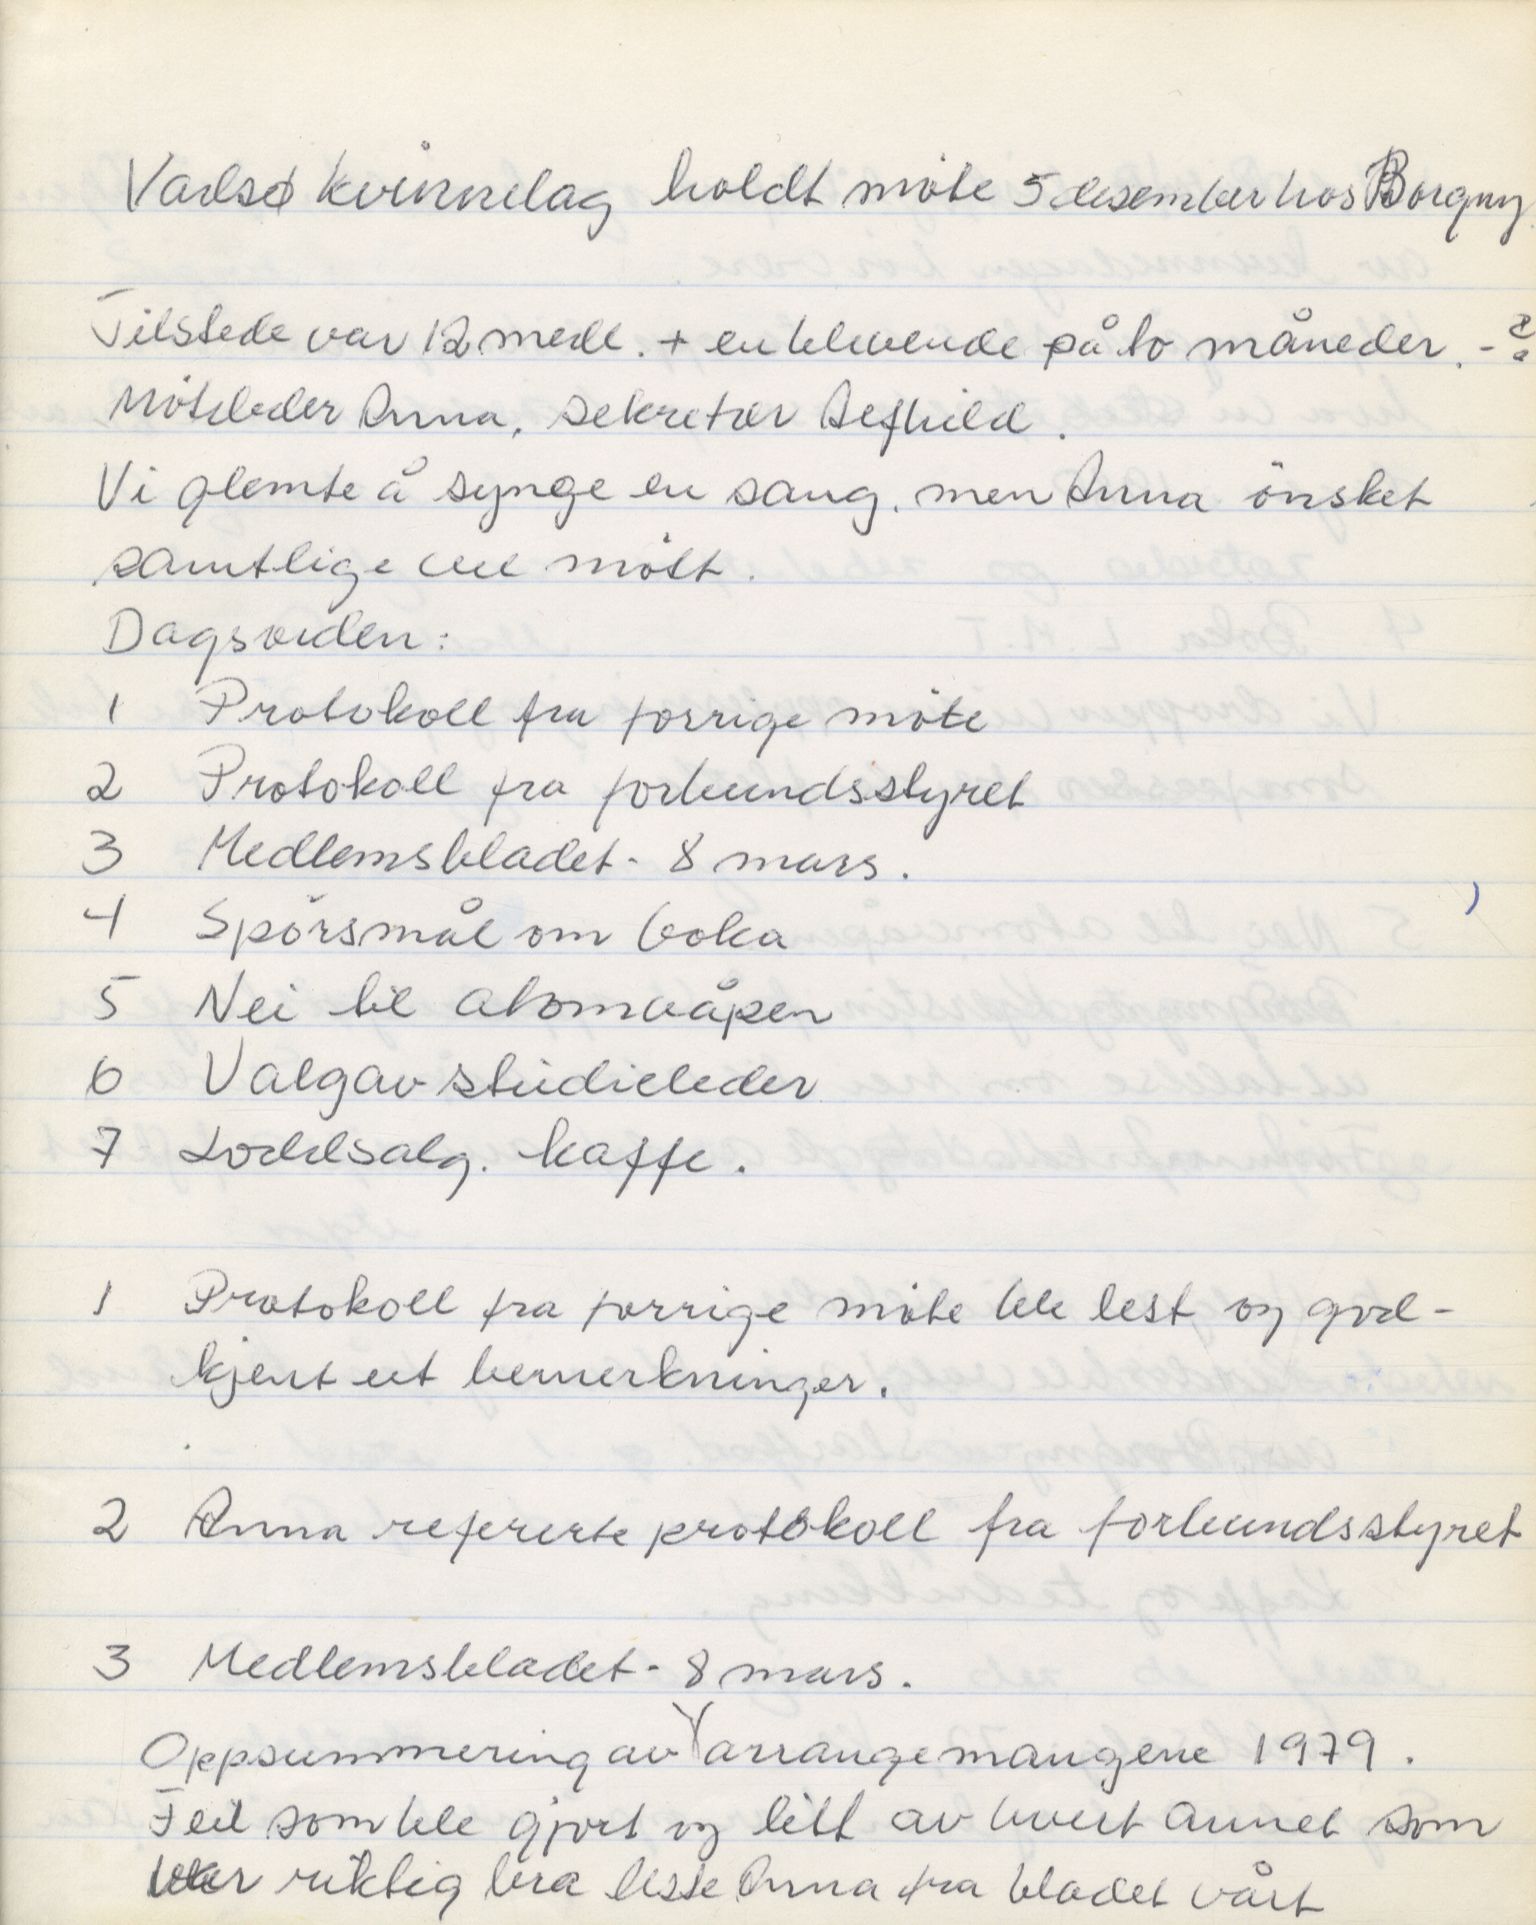 Vadsø kvinnelag holdt møte 5 desember hos Borgny
Tilstede var 12 medl. + en blivende på to måneder. - ?
Møteleder Anna, sekretær Alfhild.
Vi glemte å synge en sang, men Anna ønsket
samtlige vel møtt.
Dagsorden:
1 Protokoll fra forrige møte
2 Protokoll fra forbundsstyret
3 Medlemsbladet - 8 mars.
4 Spørsmål om boka
5 Nei til atomvåpen
6 Valg av studieleder
7 Loddsalg. kaffe.
1 Protokoll fra forrige møte ble lest og god-
kjent ut bemerkninger.
2 Anna refererte protokoll fra forbundsstyret
3 Medlemsbladet - 8 mars.
Oppsummering av arrangemangene 1979.
Feil som ble gjort og litt av hvert annet som
var riktig bra leste Anna fra bladet vårt